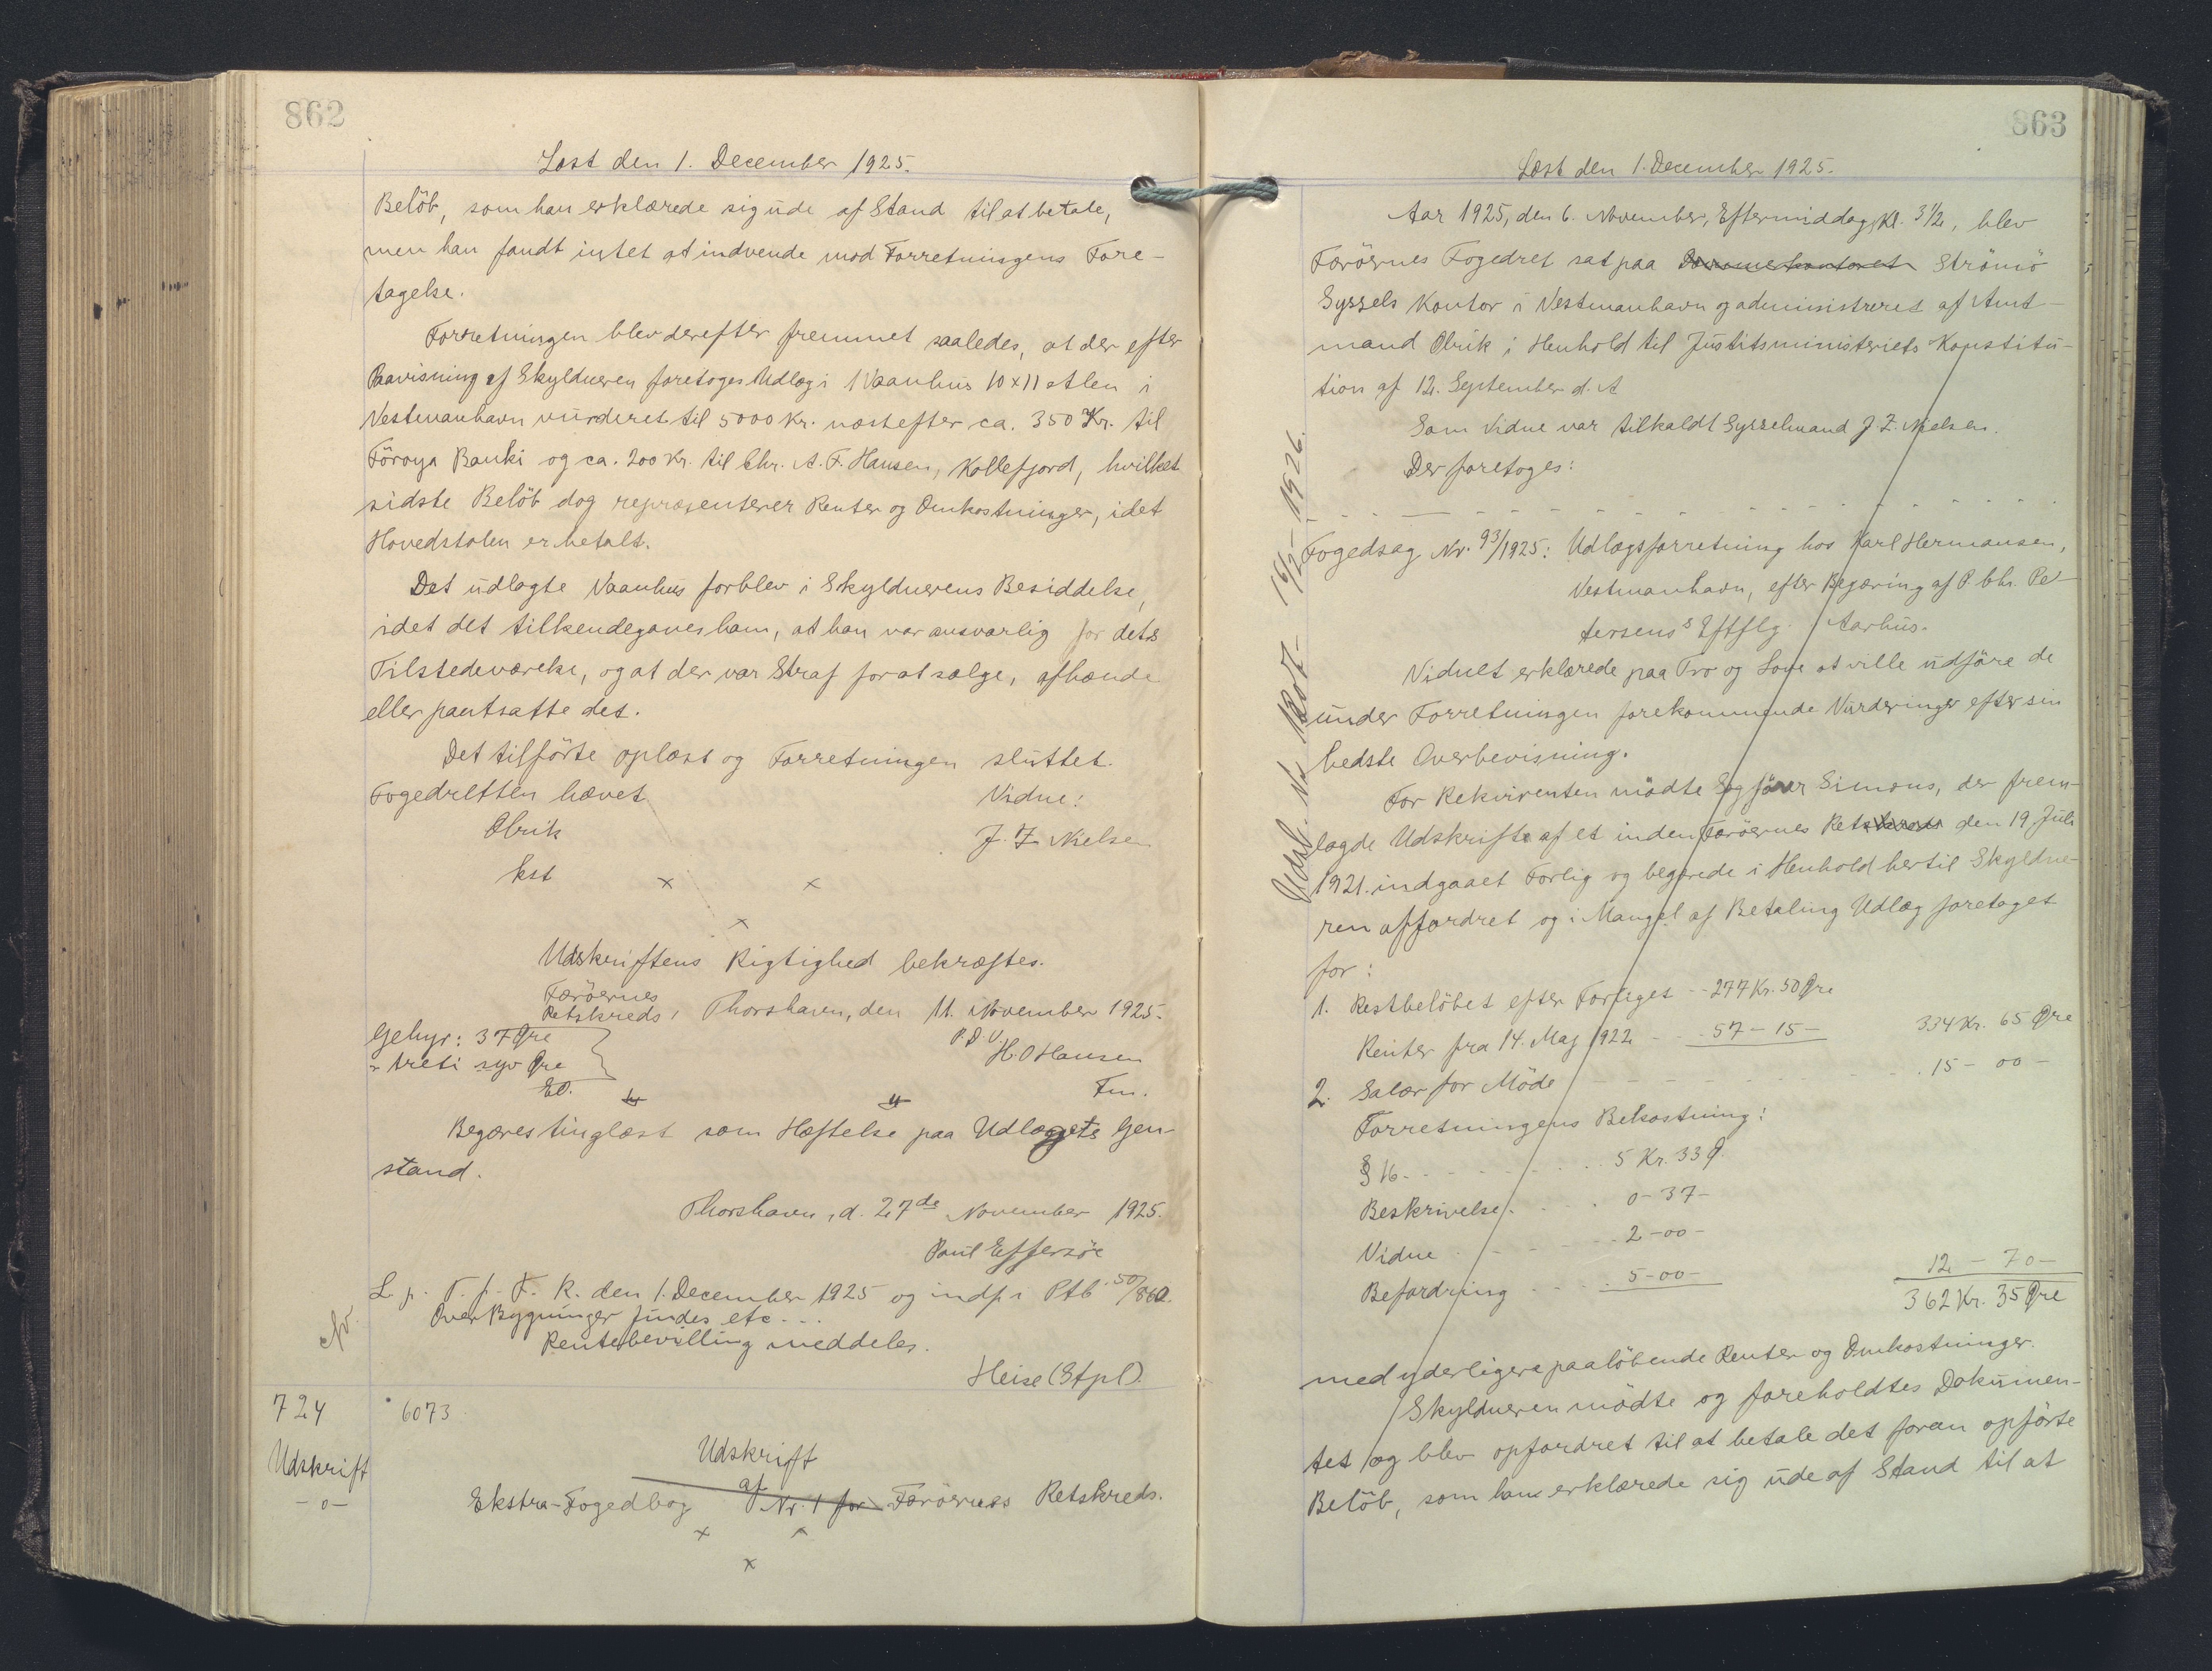 862
Læst den 1. December 1925.
Belöb, som han erklærede sig ude af Stand til at betale,
men han fandt intet at indvende mod Forretningens Fore-
tagelse.
Forretningen blev derefter fremmet saaledes, at der efter
Paavisning af Skyldneren foretoges Udlæg i 1 Vaanhus 10 x 11 Alen i
Vestmanhavn vurderet til 5000 Kr. næstefter ca. 350 Kr. til
Föroya Banki og ca. 200 Kr. til Chr. A. F. Hansen, Kollefjord, hvilket
sidste Belöb dog repræsenterer Renter og Omkostninger, idet
Hovedstolen er betalt.
Det udlagte Vaanhus forblev i Skyldnerens Besiddelse,
idet det tilkendegaves ham, at han var ansvarlig for dets
Tilstedeværelse, og at der var Straf for at sælge, afhænde
eller pantsætte det.
Det tilförte oplæst og Forretningen sluttet.
Fogedretten hævet. Vidne:
Olrik J. Z. Nielsen
kst
x x
x
Udskriftens Rigtighed bekræftes.
Færöernes
Retskreds, Thorshavn, den 11. November 1925.
Gebyr: 37 Øre P. D. V.
H. O Hansen
- treti syv Øre
EO. Fm.
Begæres tinglæst som Hæftelse paa Udlæggets Gen-
stand.
Thorshavn, d. 27de November 1925.
Poul Effersöe
L. p. T. f. F. R. den 1. December 1925 og indf. i Ptb. 50/860.
Over Bygninger findes etc...
Rentebevilling meddeles.
cfr.
Heise (Stpl).
724 6073
Udskrift
- o -
Udskrift
af
Ekstra-Fogedbog Nr. 1 for Færöernes Retskreds.
x x
x
863
Læst den 1. December 1925.
Aar 1925, den 6. November, Eftermiddag Kl. 3 1/2, blev
Færöernes Fogedret sat paa Strömö
Syssels Kontor i Vestmanhavn og administreret af Amt-
mand Olrik i Henhold til Justitsministeriets Konstitu-
tion af 12. September d. A
Som Vidne var tilkaldt Sysselmand J. Z. Nielsen.
Der foretoges:
Fogedsag Nr. 93/1925: Udlægsforretning hos Karl Hermansen,
Vestmanhavn, efter Begæring af P. Chr. Pe-
tersens Eftflg. Aarhus.
Vidnet erklærede paa Tro og Love at ville udföre de
under Forretningen forekommende Vurderinger efter sin
bedste Overbevisning.
For Rekvirenten mödte Sagförer Simons, der frem-
lagde Udskrift af et inden Færöernes Ret den 19 Juli
1921. indgaaet Forlig og begærede i Henhold hertil Skyldne-
ren affordret og i Mangel af Betaling Udlæg foretaget
for:
1. Restbelöbet efter Forliget - - 277 Kr. 50 Øre
Renter fra 14. Maj 1922 - - 57 - 15 - 334 Kr. 65 Øre
2. Salær for Möde - - - 15 - 00 -
Forretningens Bekostning:
§ 16 - - - 5 Kr. 33 Ø.
Beskrivelse . . . 0 - 37 -
Vidne . . . 2 - 00 -
Befordring . . . 5 - 00 - 12 - 70 -
362 Kr. 35 Øre
med yderligere paalöbende Renter og Omkostninger.
Skyldneren mödte og foreholdtes Dokumen-
tet og blev opfordret til at betale det foran opförte
Belöb, som han erklærede sig ude af Stand til at